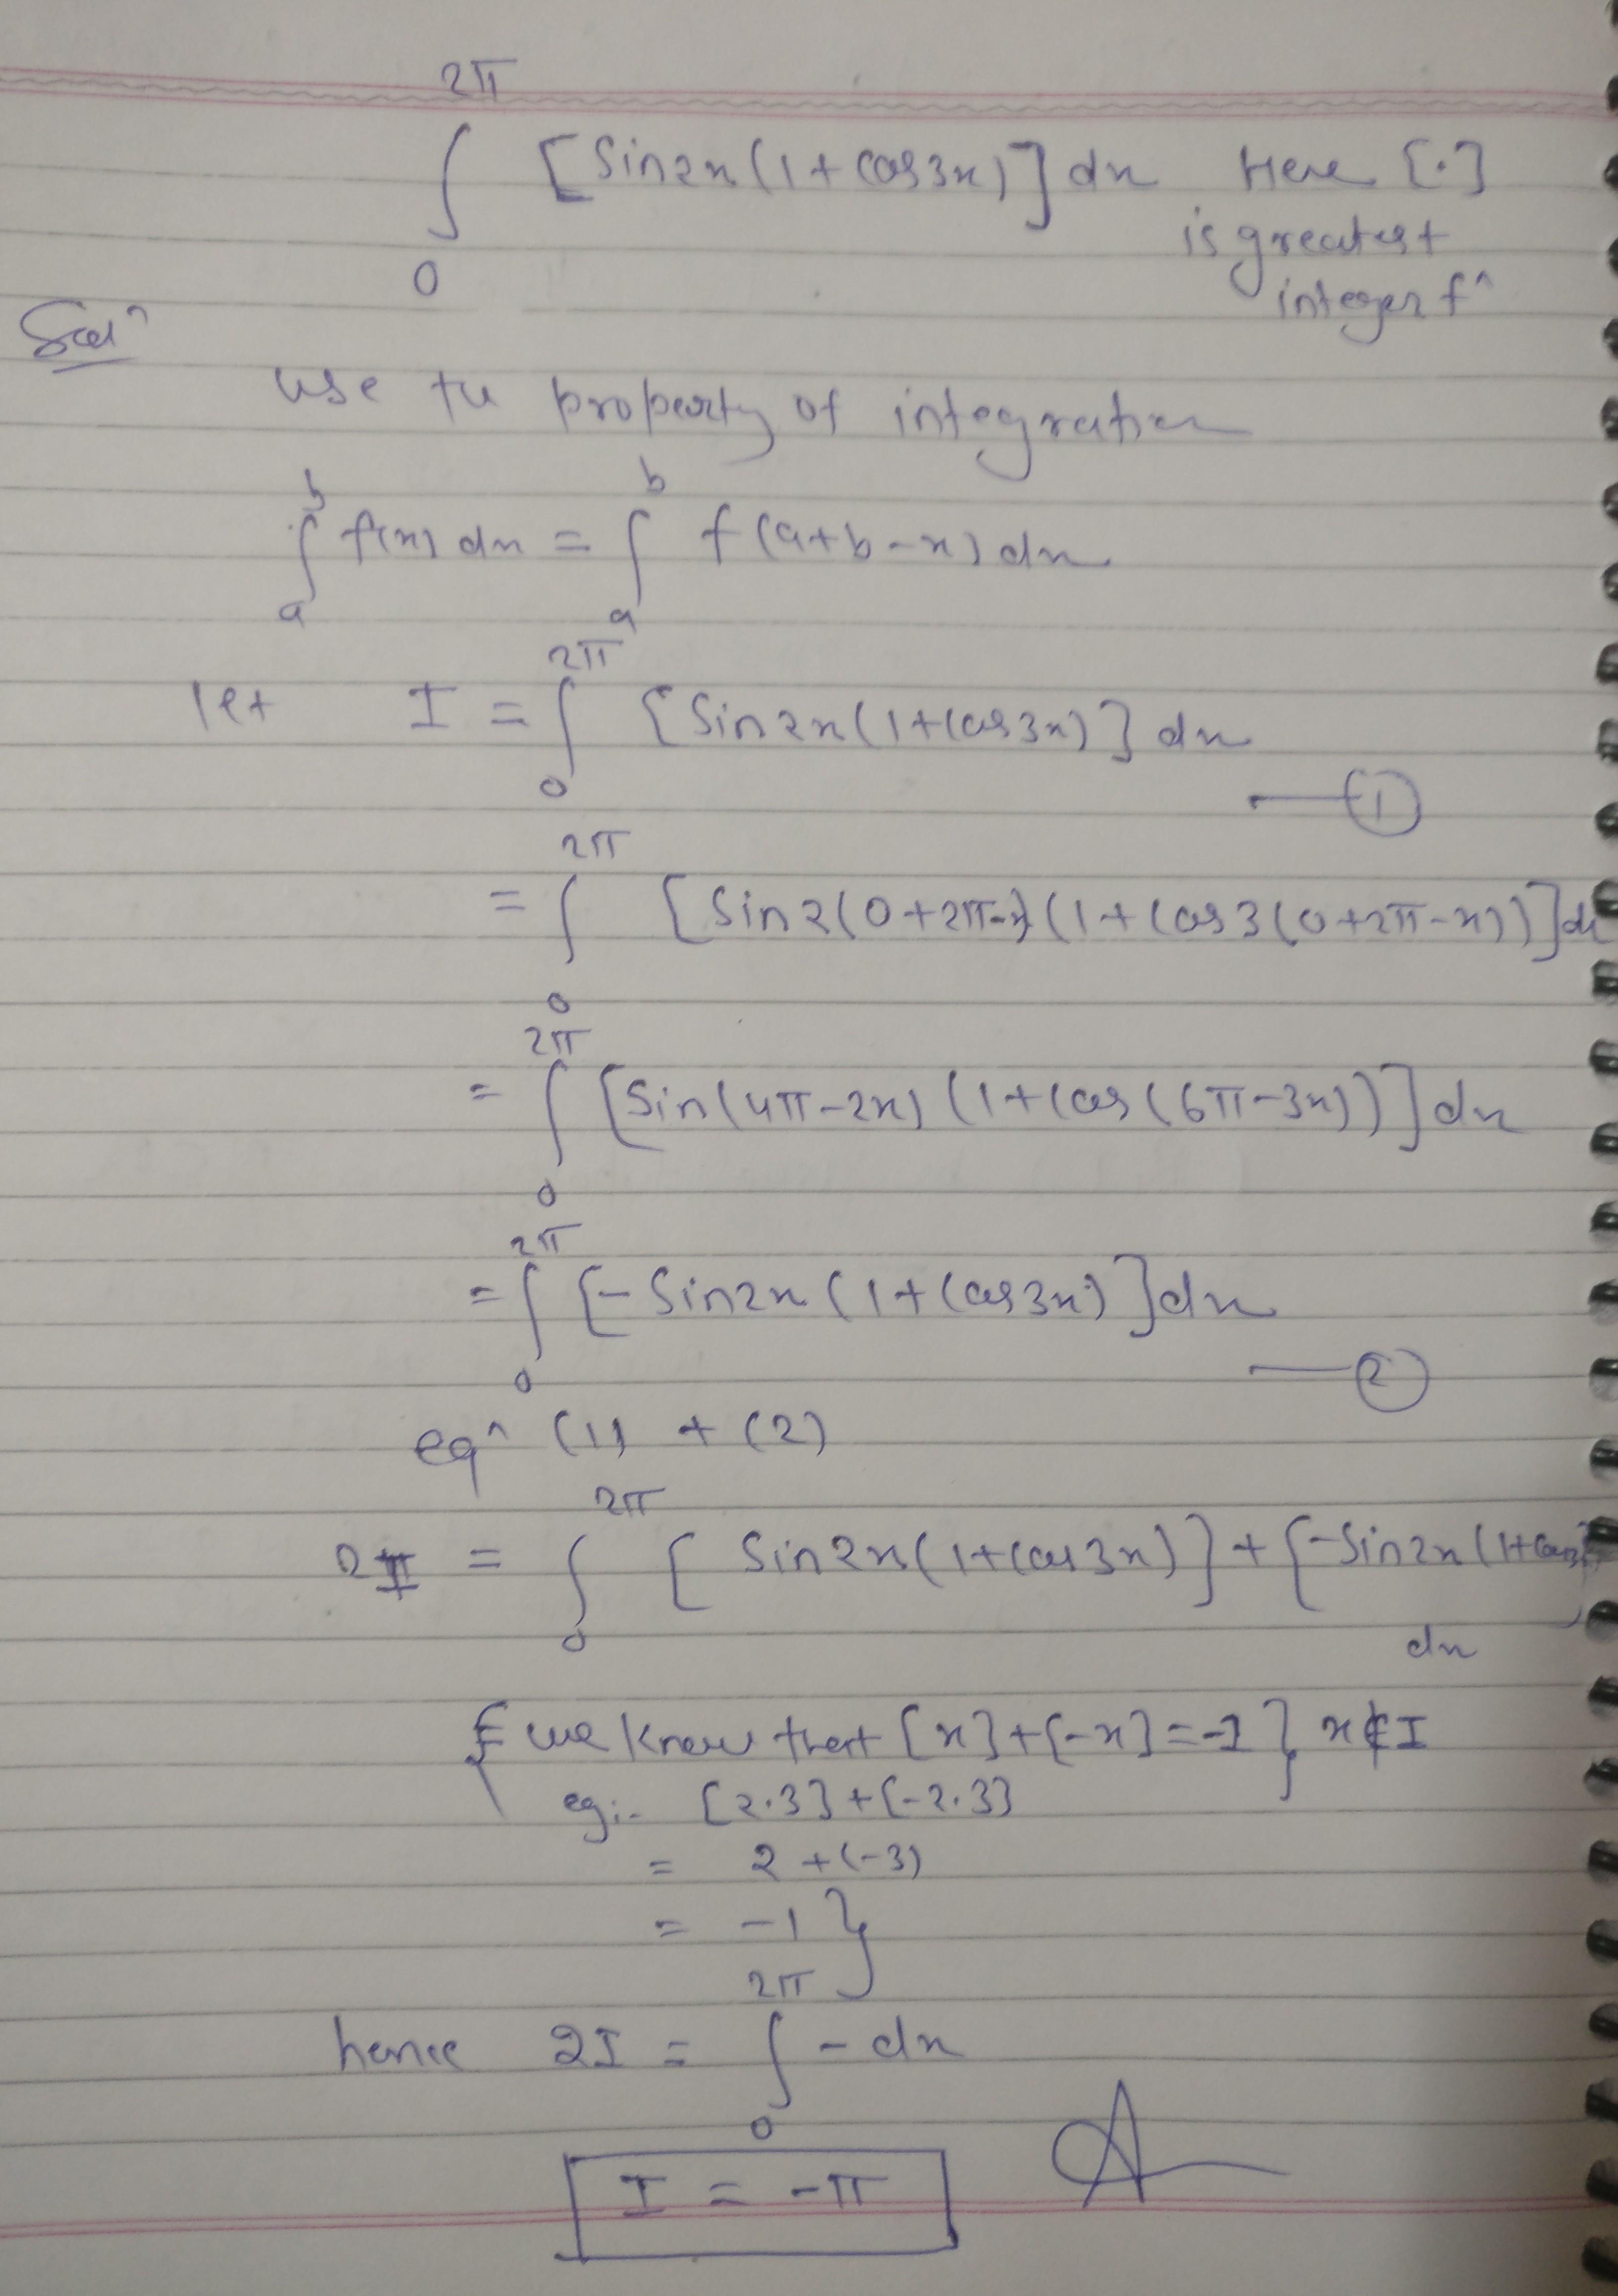 2π
∫ [Sin2x(1+cos3x)] dx Here [.]
is greatest
0
integer fⁿ
Solⁿ
use the property of integration
b b
∫ f(x) dx = ∫ f(a+b-x) dx
a a
2π
let I = ∫ [Sin2x(1+cos3x)] dx
0
—①
2π
= ∫ [Sin2(0+2π-x)(1+cos3(0+2π-x))]dx
0
2π
= ∫ [Sin(4π-2x)(1+cos(6π-3x))]dx
0
2π
= ∫ [-Sin2x(1+cos3x)]dx
0
—②
eqⁿ (1) + (2)
2π
2I = ∫ [Sin2x(1+cos3x)]+[-Sin2x(1+cos3x)]
0
dx
{we know that [x]+[-x]=-1} x∉I
eg:- [2.3]+[-2.3]
= 2+(-3)
= -1}
2π
hence 2I = ∫ -dx
0
I = -π